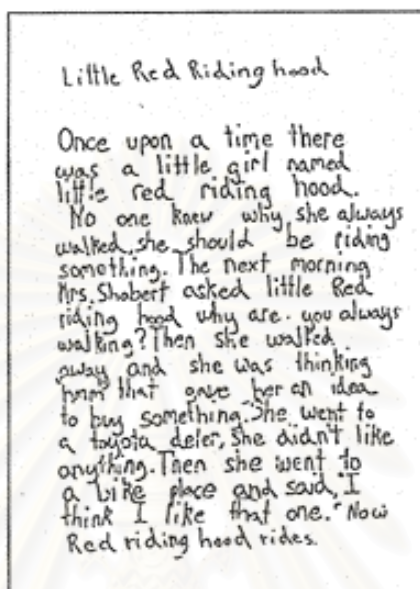 Little Red Riding hood
Once upon a time there
was a little girl named
little red riding hood.
No one knew why she always
walked, she should be riding
something. The next morning
Mrs. Shobert asked little Red
riding hood why are you always
walking? Then she walked
away and she was thinking
hmm that gave her an idea
to buy something. She went to
a toyota deler, She didn't like
anything. Then she went to
a bike place and said, "I
think I like that one." Now
Red riding hood rides.